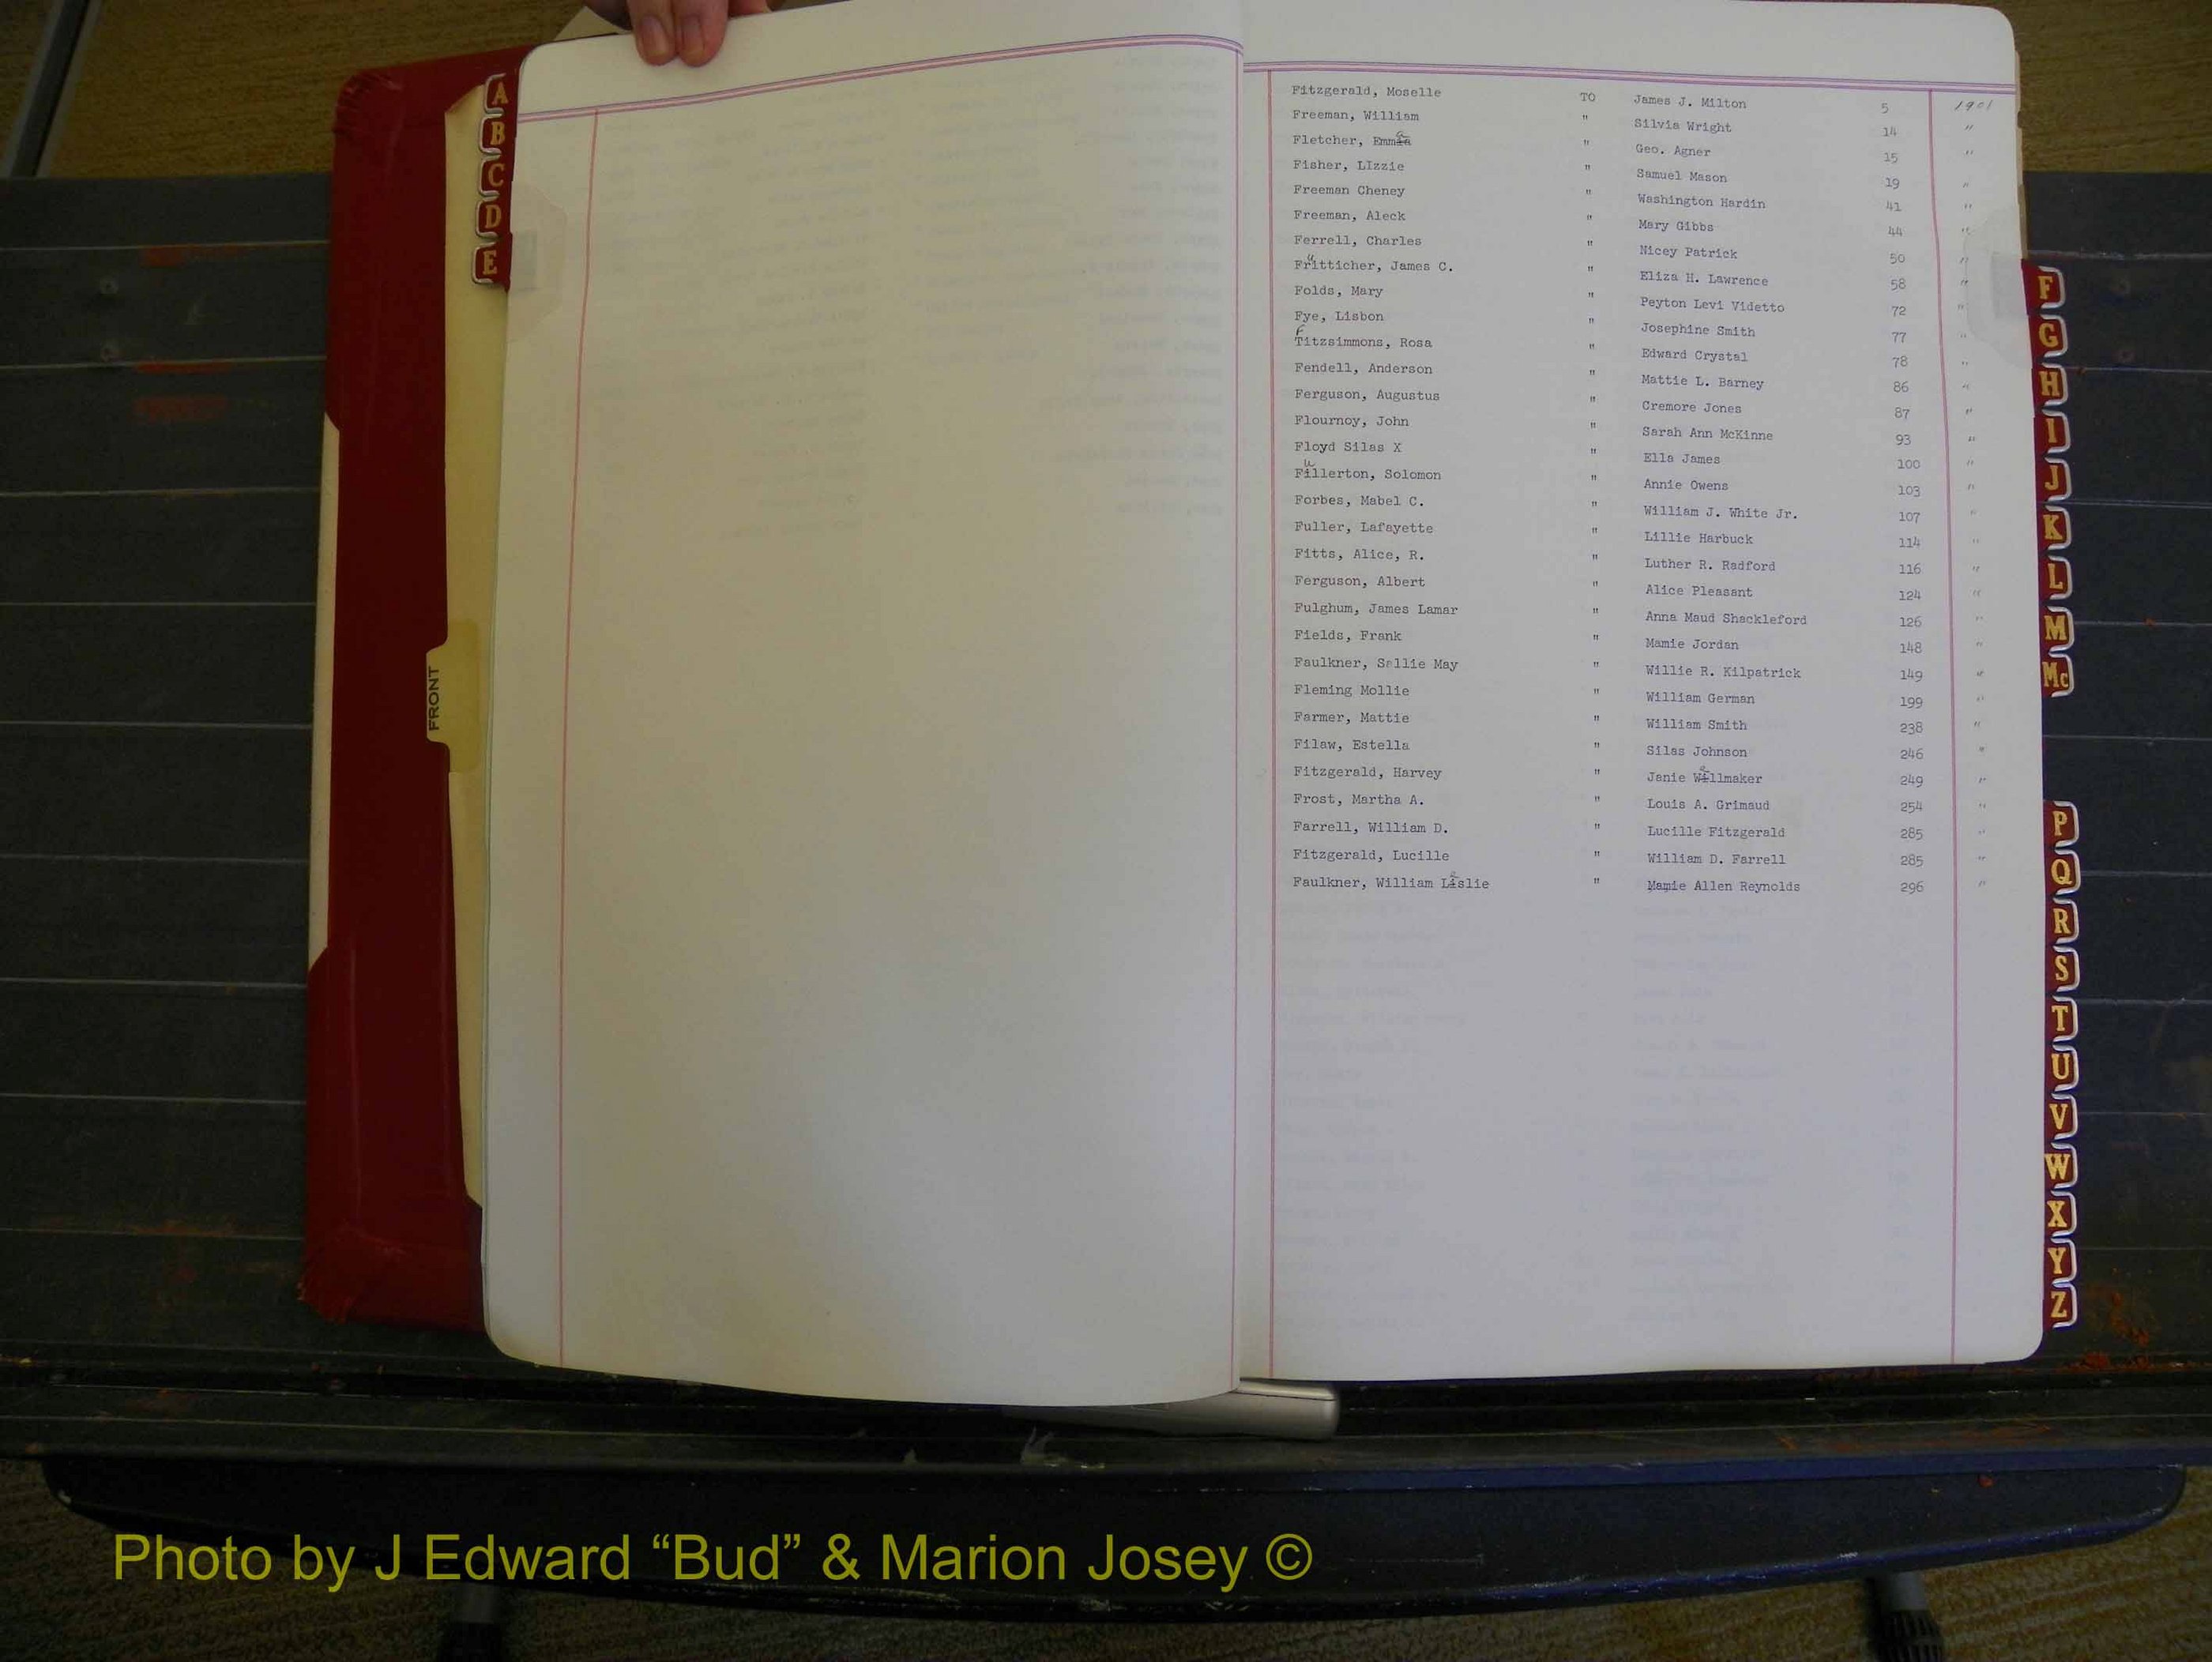 A
B
C
D
E
FRONT
Fitzgerald, Moselle TO James J. Milton 5 1901
Freeman, William " Silvia Wright 14 "
Fletcher, Emma " Geo. Agner 15 "
Fisher, LIzzie " Samuel Mason 19 "
Freeman Cheney " Washington Hardin 41 "
Freeman, Aleck " Mary Gibbs 44 "
Ferrell, Charles " Nicey Patrick 50 "
Frutticher, James C. " Eliza H. Lawrence 58 "
Folds, Mary " Peyton Levi Videtto 72 "
Fye, Lisbon " Josephine Smith 77 "
Fitzsimmons, Rosa " Edward Crystal 78 "
Fendell, Anderson " Mattie L. Barney 86 "
Ferguson, Augustus " Cremore Jones 87 "
Flournoy, John " Sarah Ann McKinne 93 "
Floyd Silas X " Ella James 100 "
Fullerton, Solomon " Annie Owens 103 "
Forbes, Mabel C. " William J. White Jr. 107 "
Fuller, Lafayette " Lillie Harbuck 114 "
Fitts, Alice, R. " Luther R. Radford 116 "
Ferguson, Albert " Alice Pleasant 124 "
Fulghum, James Lamar " Anna Maud Shackleford 126 "
Fields, Frank " Mamie Jordan 148 "
Faulkner, Sallie May " Willie R. Kilpatrick 149 "
Fleming Mollie " William German 199 "
Farmer, Mattie " William Smith 238 "
Filaw, Estella " Silas Johnson 246 "
Fitzgerald, Harvey " Janie Wellmaker 249 "
Frost, Martha A. " Louis A. Grimaud 254 "
Farrell, William D. " Lucille Fitzgerald 285 "
Fitzgerald, Lucille " William D. Farrell 285 "
Faulkner, William Leslie " Mamie Allen Reynolds 296 "
F
G
H
I
J
K
L
M
Mc
P
Q
R
S
T
U
V
W
X
Y
Z
Photo by J Edward “Bud” & Marion Josey ©